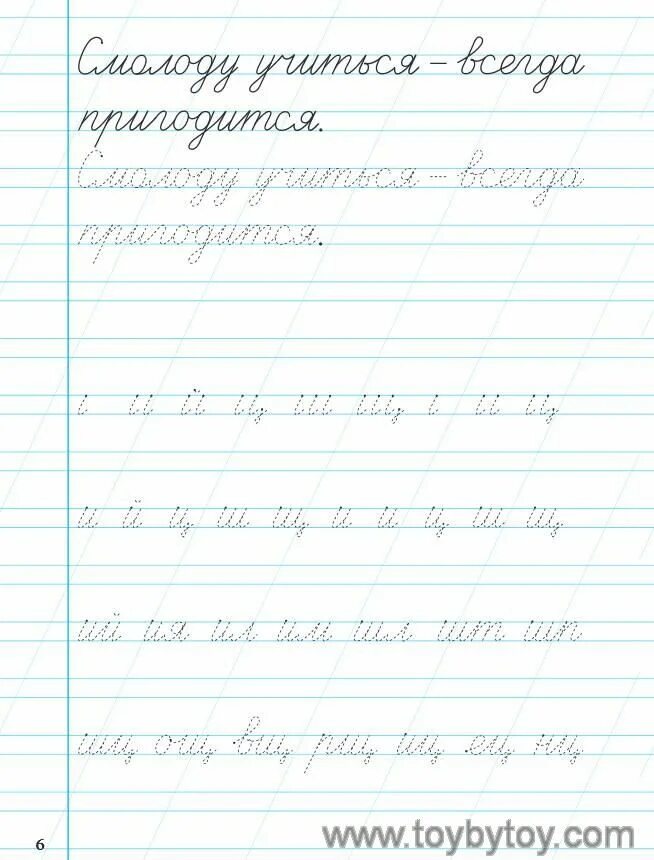 Смолоду учиться – всегда
пригодится.
Смолоду учиться – всегда
пригодится.
ı и й ц ш щ ı и ц
и й ц ш щ и и ц ш щ
ий ия ил им шл шт шп
шц ощ вщ рщ иц ец нц
6
www.toybytoy.com